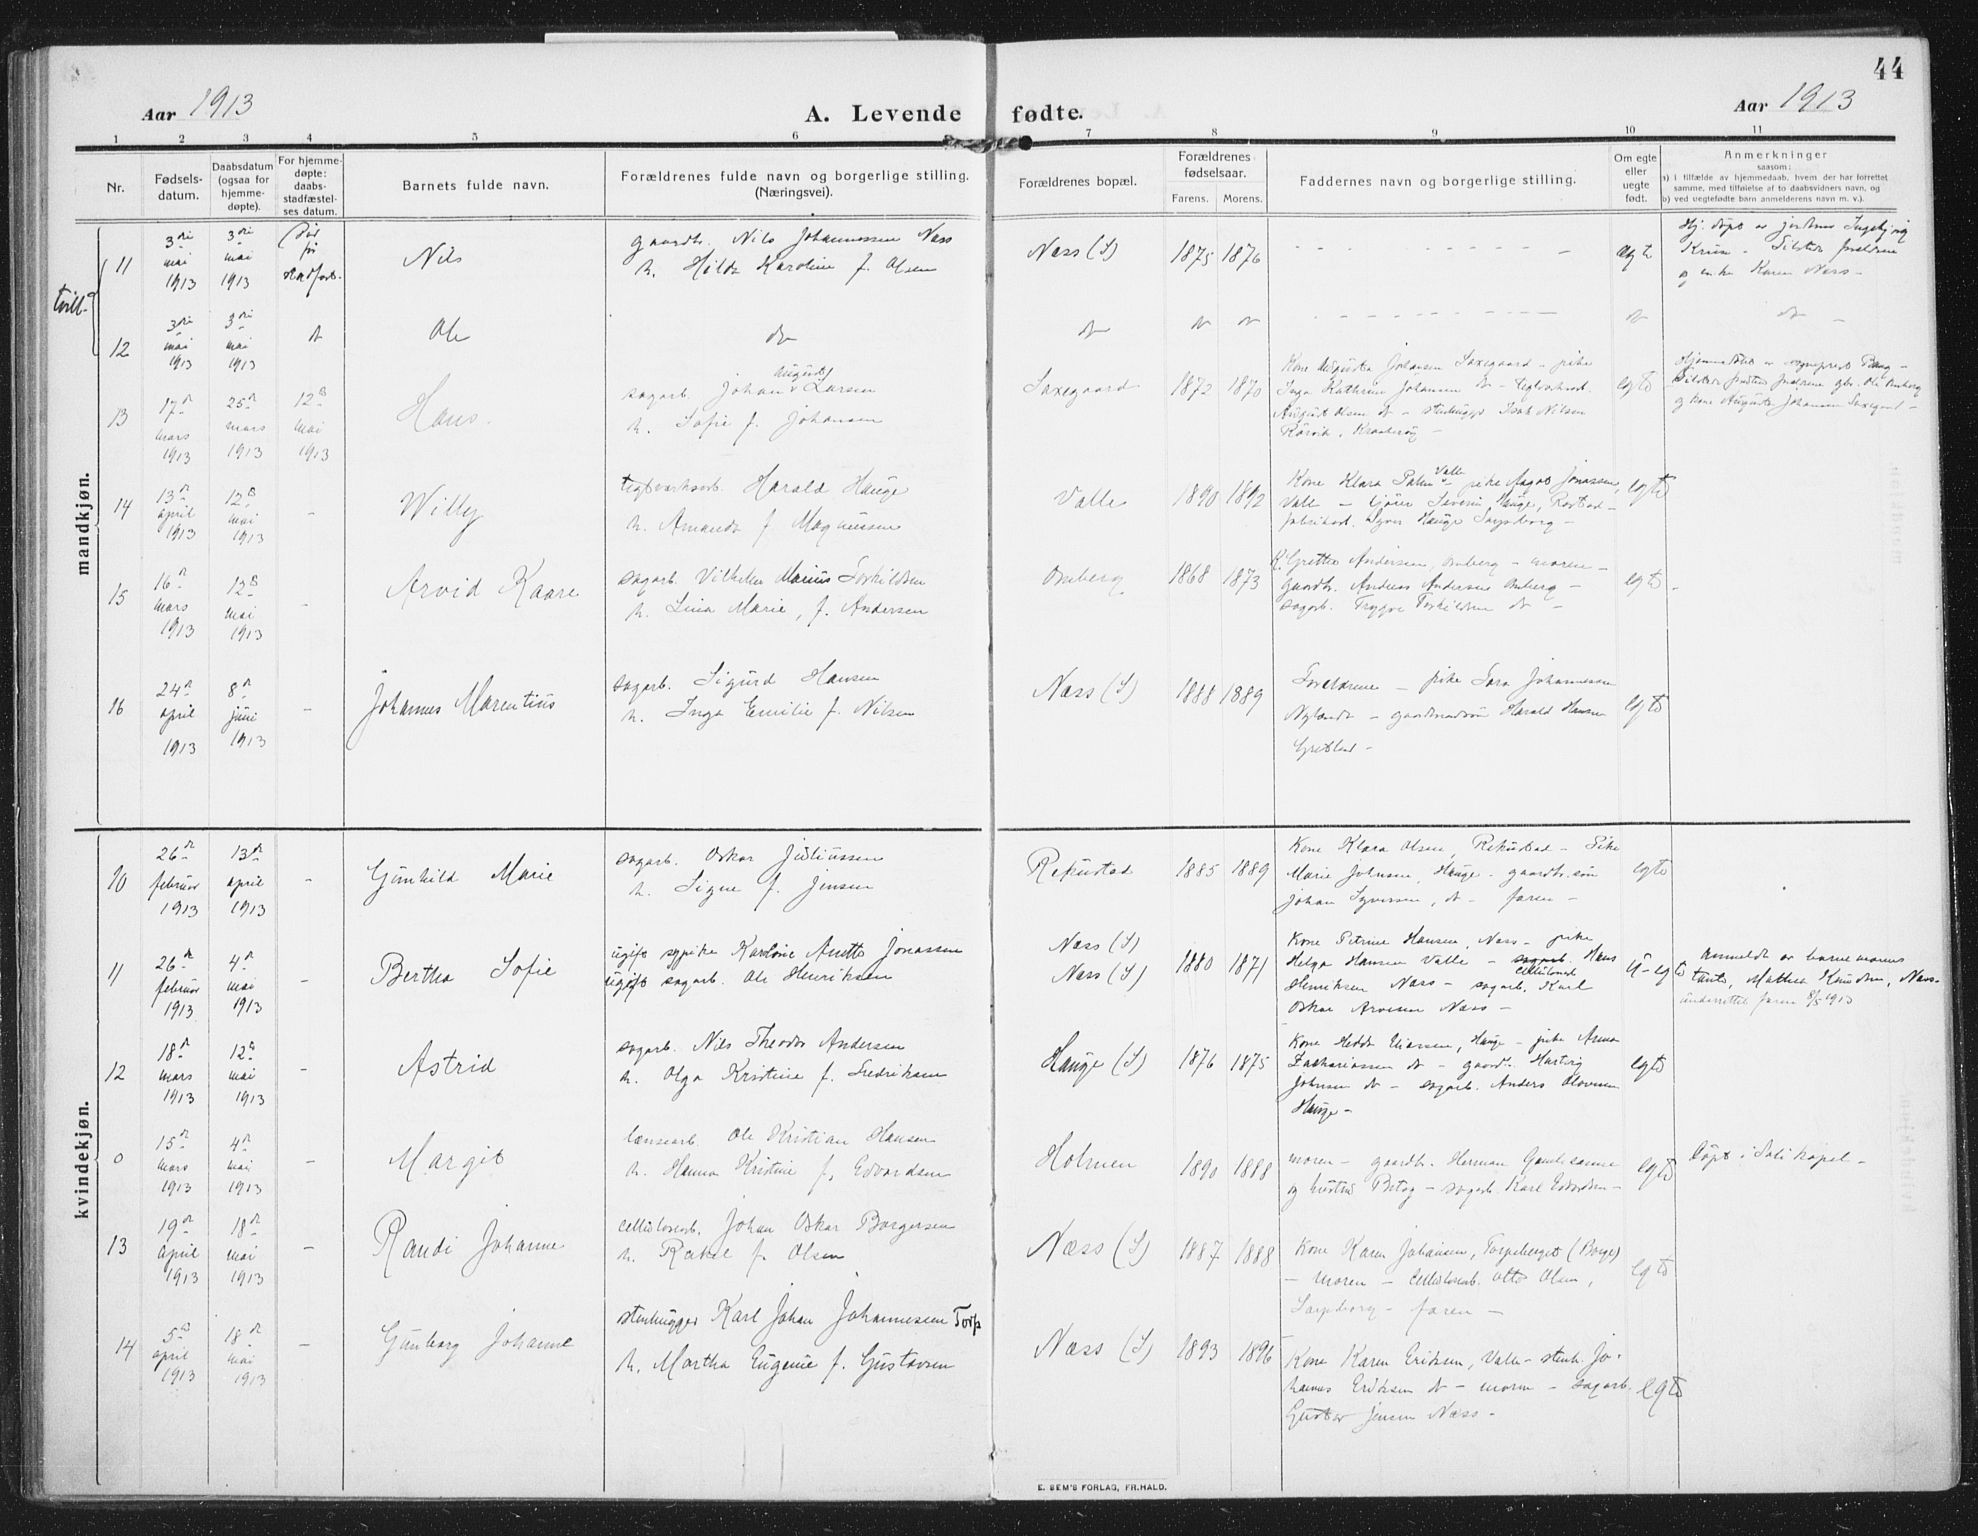 44
Aar 1913
A. Levende fødte.
Aar 1913
1 2 3 4 5 6 7 8 9 10 11
Nr.
Fødsels-
datum.
Daabsdatum
(ogsaa for
hjemme-
døpte).
For hjemme-
døpte:
daabs-
stadfæstel-
ses datum.
Barnets fulde navn.
Forældrenes fulde navn og borgerlige stilling.
(Næringsvei).
Forældrenes bopæl.
Forældrenes
fødselsaar.
Farens. Morens.
Faddernes navn og borgerlige stilling.
Om egte
eller
uegte
født.
Anmerkninger
saasom:
a) i tilfælde av hjemmedaab, hvem der har forrettet
samme, med tilføielse af to daabsvidners navn, og
b) ved uegtefødte barn anmelderens navn m. v.).
mandkjøn.
tvill.
11
3die mai 1913
3die mai 1913
Død før stadfest.
Nils
gaardb. Nils Johannessen Næss
h. Hilda Karoline f. Olsen
Næss (S) 1875 1876
egte
Hj. døpt av jordmor Ingebjørg
og enke Karen Næss -
12
3die mai 1913
3die mai 1913
Ole
do
13
17de mars 1913
25de mars 1913
12te mai 1913
Hans.
August
sagarb. Johan Larsen
h. Sofie f. Johansen
Saxegaard 1872 1870
Kone Augusta Johansen Saxegaard - pike
Inga Kathrine Johansen
August Olsen - stenhugger Isak Nilsen
egte
Hjemmedøpt av sogneprest
og kone Augusta Johansen Saxegaard -
14
13de april 1913
12te mai 1913
-
Willy
teglverksarb. Harald Hauge
h. Amanda f. Magnussen
Valle 1890 1892
Valle
Kone Klara Palm - pike Aagot Jonassen,
Valle - Severin Hauge,
Hauge Sarpsborg -
egte
15
16de mars 1913
12te mai 1913
-
Arvid Kaare
sagarb. Vilhelm Marius Torkildsen
h. Lina Marie, f. Andersen
Omberg 1868 1873
K. Grethe Andersen, Omberg - moren -
gaardb. Andreas Andersen Omberg -
sagarb. Trygve Torkildsen
egte
16
24de april 1913
8de juni 1913
-
Johannes Marentius
sagarb. Sigurd Hansen
h. Inga Emilie f. Nilsen
Næss (S) 1888 1889
Forældrene - pike Sara Johannessen
Harald Hansen
egte
kvindekjøn.
10
26de februar 1913
13de april 1913
-
Gunhild Marie
sagarb. Oskar Juliussen
h. Signe f. Jensen
Rekustad 1885 1889
Kone Klara Olsen, Rekustad - Pike
Marie Johnsen, Hauge - gaardb. søn
Johan Syversen, - faren -
egte
11
26de februar 1913
4de mai 1913
-
Bertha Sofie
ugift sypike Karoline Anette Jonassen
ugift sagarb. Ole Henriksen
Næss (S)
Næss (S)
1880 1871
Kone Petrine Hansen, Næss - pike
Helga Hansen Valle - Hans
Henriksen Næss - sagarb. Karl
Oskar Arvesen Næss -
u-egte
anmeldt av barnemorens
tante, Mathea Knudsen, Næss -
underrettet faren 8/5 1913
12
18de mars 1913
12te mai 1913
-
Astrid
sagarb. Nils Theodor Andersen
h. Olga Kristine f. Fredriksen
Hauge (S) 1876 1875
Kone Hedda Eliassen, Hauge - pike Anna
Zachariassen - gaardb. Hartvig
Johnsen - sagarb. Anders Olavesen
Hauge -
egte
0
15de mars 1913
4de mai 1913
-
Margit
lænsearb. Ole Kristian Hansen
h. Hanna Kristine f. Edvardsen
Holmen 1890 1888
moren - gaardb. Herman
og hustru - sagarb. Karl Edvardsen -
egte
Døpt i Soli kapel -
13
19de april 1913
18de mai 1913
-
Randi Johanne
cellulosearb. Johan Oskar Borgersen
h. Rakel f. Olsen
Næss (S) 1887 1888
Kone Karen Johansen, Torpeberget (Borge)
- moren - cellulosearb. Otto Olsen,
Sarpsborg - faren -
egte
14
5te april 1913
18de mai 1913
-
Gunborg Johanne
stenhugger Karl Johan Johannesen Torp
h. Martha Eugenie f. Gustavsen
Næss (S) 1893 1896
Kone Karen Eriksen, Valle - stenh. Jo-
hannes Eriksen - moren - sagarb.
Gustav Jensen Næss -
egte
E. SEM'S FORLAG, FR.HALD.